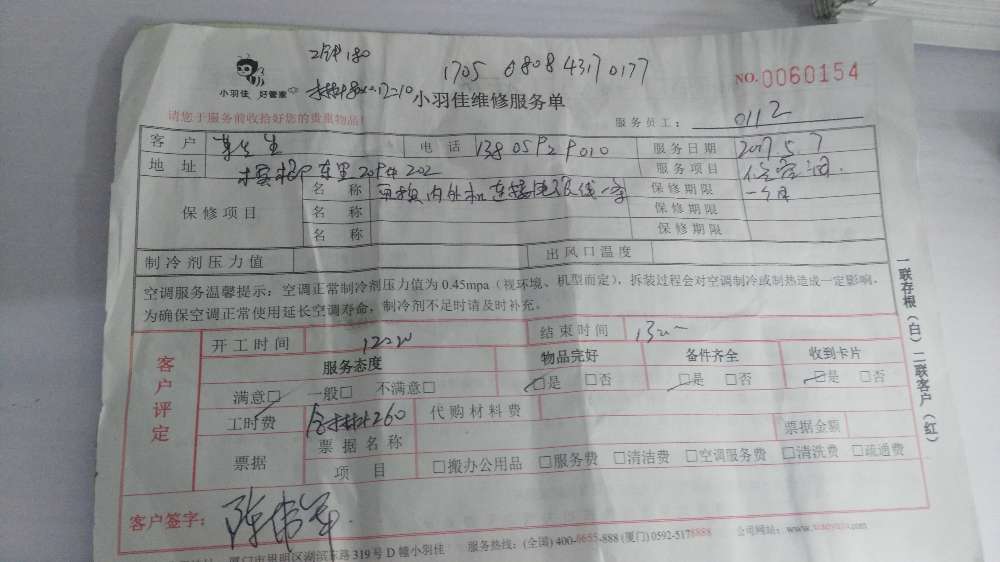 1705 0808 4317 0177
NO.0060154
小羽佳 好管家
小羽佳维修服务单
请您于服务前收拾好您的贵重物品!
服务员工: 0112
客户 先生 电话 服务日期 2017.5.7
地址 东里 202 服务项目
保修项目 名称 内外机连接 线 保修期限 一个月
名称 保修期限
名称 保修期限
制冷剂压力值 出风口温度
空调服务温馨提示:空调正常制冷剂压力值为0.45mpa(视环境、机型而定),拆装过程会对空调制冷或制热造成一定影响,
为确保空调正常使用延长空调寿命,制冷剂不足时请及时补充。
一联存根(白)二联客户(红)
客户评定
开工时间 结束时间
服务态度 物品完好 备件齐全 收到卡片
满意□ 一般□ 不满意□ □是 □否 □是 □否 □是 □否
工时费 含材料260 代购材料费
票据 票据名称 票据金额
项目 □搬办公用品 □服务费 □清洁费 □空调服务费 □清洗费 □疏通费
客户签字:
厦门市思明区湖滨东路319号D幢小羽佳 服务热线:(全国)400-6655-888 (厦门)0592-5178888 公司网站: